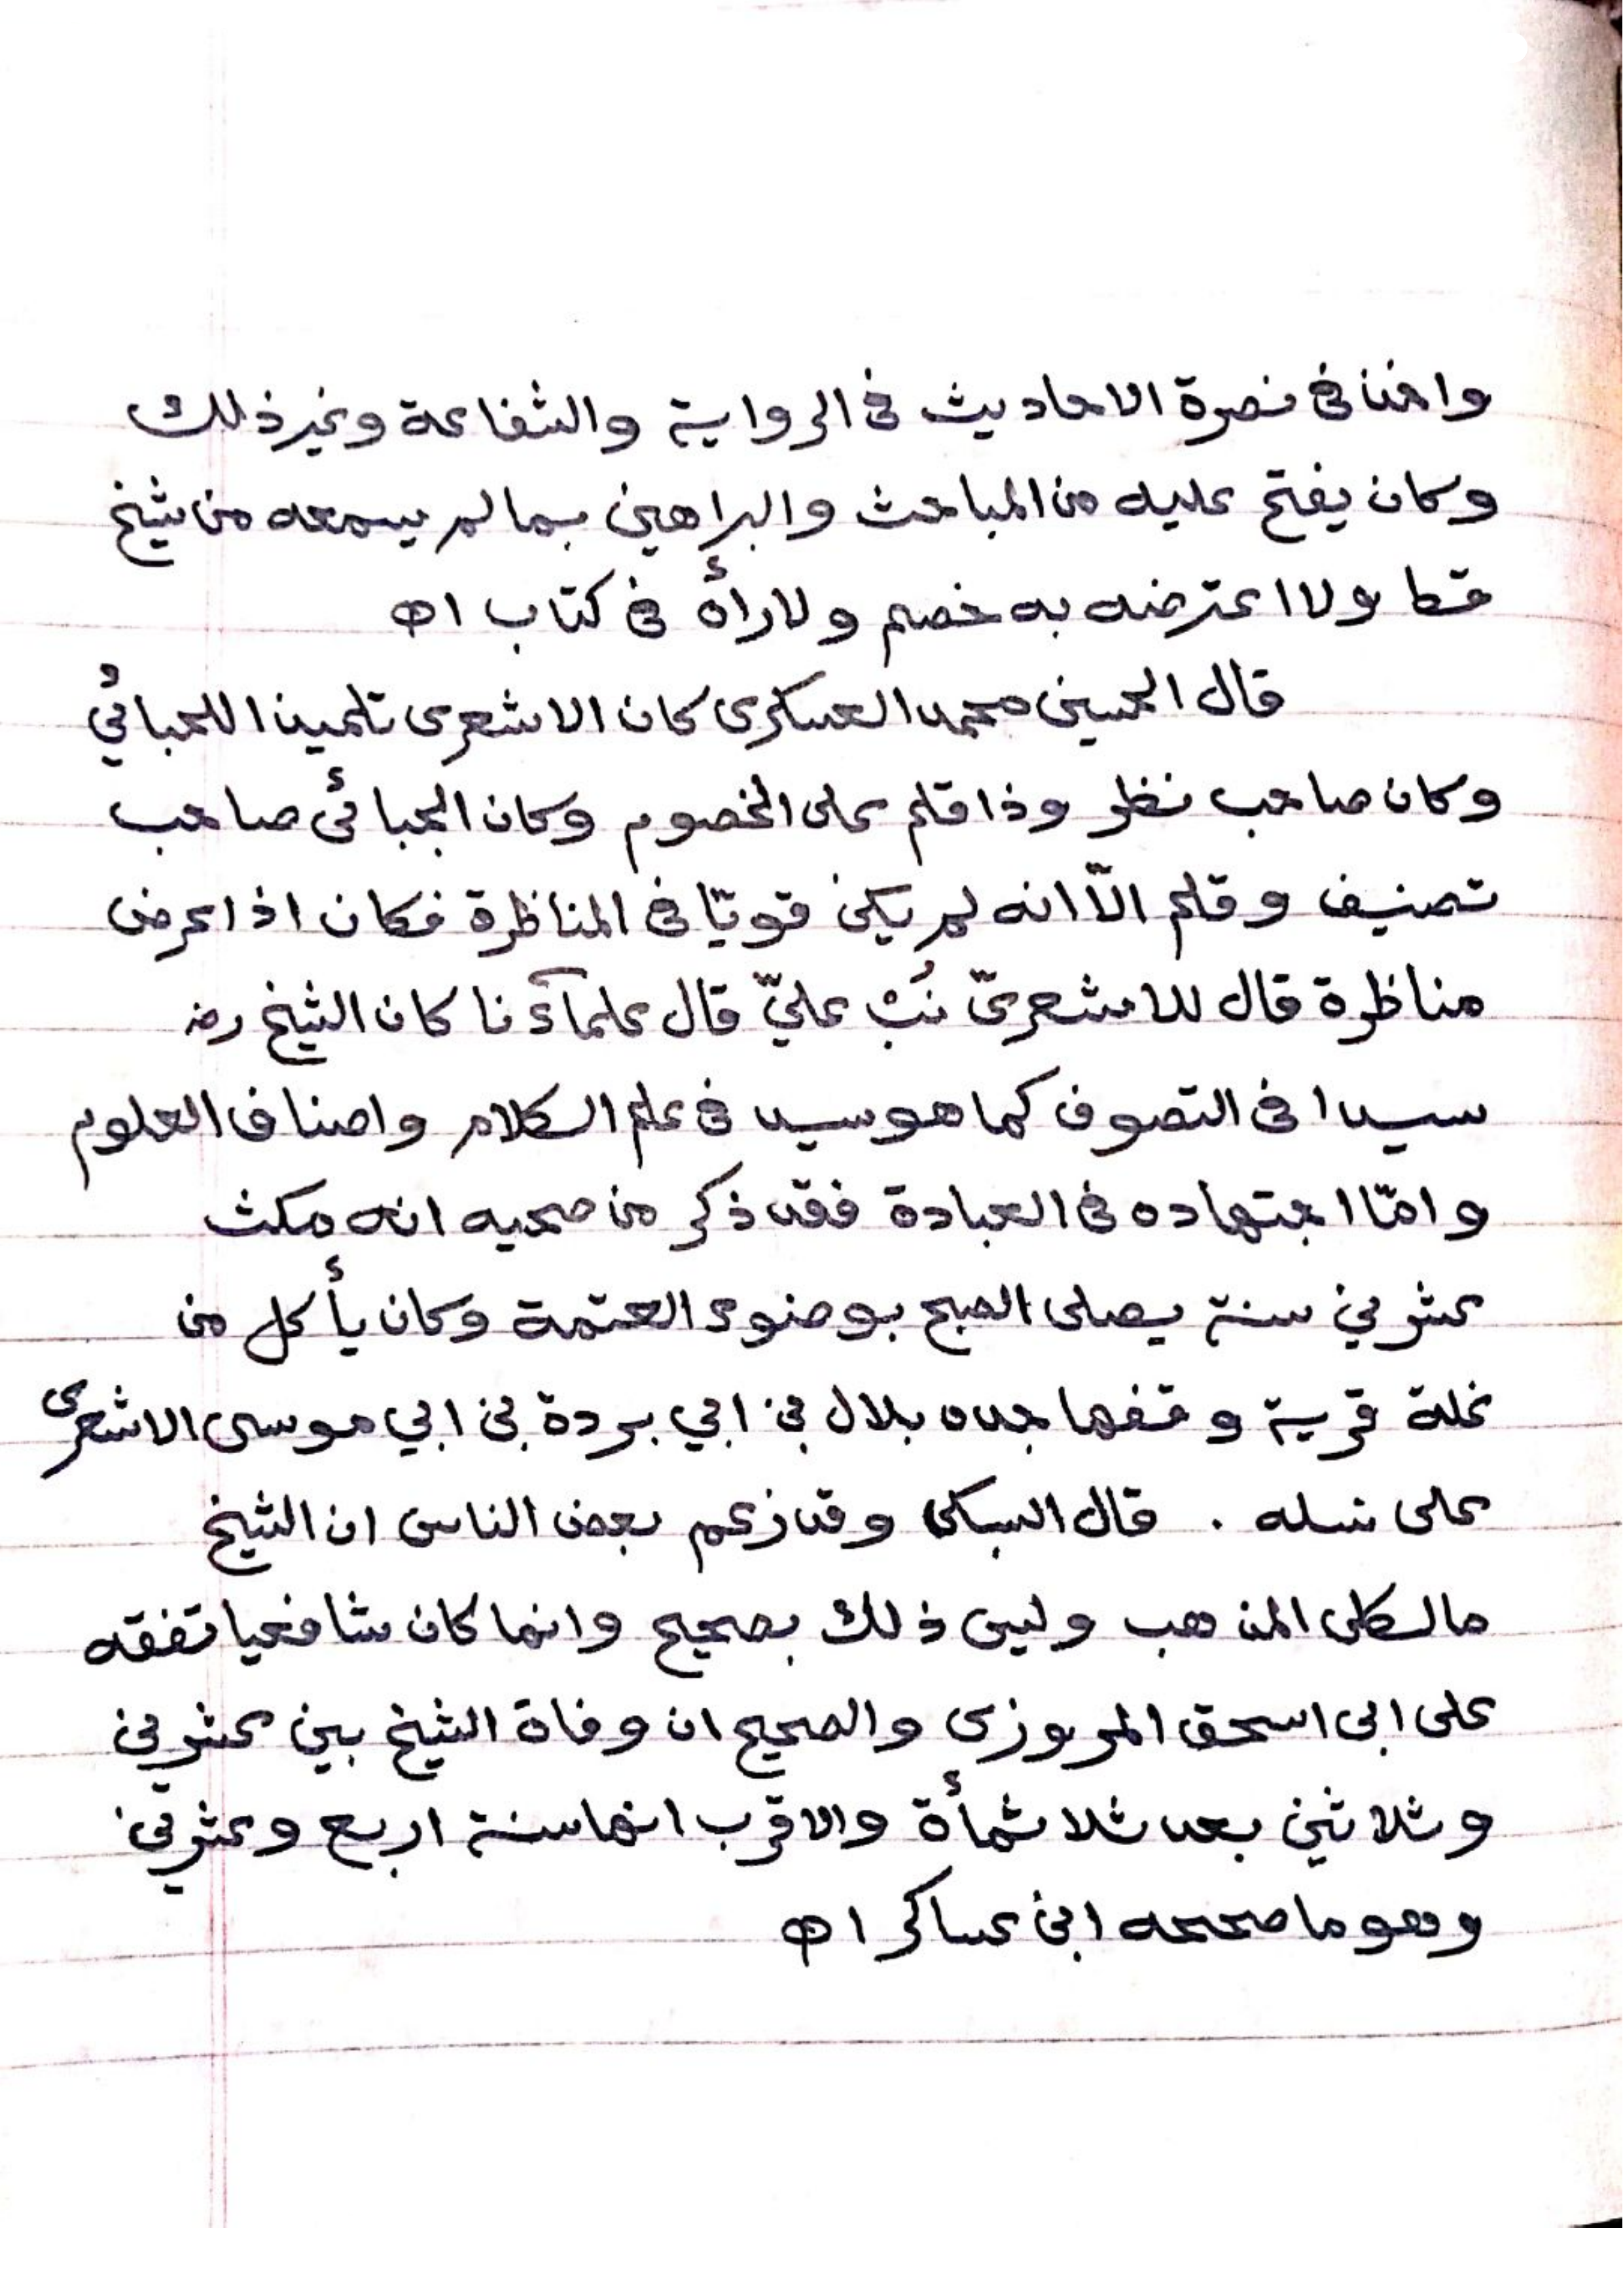 واخذ فى نصرة الاحاديث فى الرواية والشفاعة وغير ذلك
وكان يفتح عليه من المباحث والبراهين بما لم يسمعه من شيخ
قط ولا اعترضه به خصم ولا رأه فى كتاب اه
قال الحسين محمد العسكرى كان الاشعرى تلميذا للجبائي
وكان صاحب نظر وذا قلم على الخصوم وكان الجبائى صاحب
تصنيف وقلم الّا انه لم يكن قويّا فى المناظرة فكان اذا عرض
مناظرة قال للاشعرىّ نُبْ عليّ قال علمآؤنا كان الشيخ رضـ
سيدا فى التصوف كما هو سيد فى علم الكلام واصناف العلوم
وامّا اجتهاده فى العبادة فقد ذكر من صحبه انه مكث
عشرين سنة يصلى الصبح بوضوء العتمة وكان يأكل من
غلة قرية وقفها جده بلال بن ابي بردة بن ابي موسى الاشعرى
على نسله . قال السبكى وقد زعم بعض الناس ان الشيخ
مالكى المذهب وليس ذلك بصحيح وانما كان شافعيا تفقه
على ابى اسحق المروزى والصحيح ان وفاة الشيخ بين عشرين
وثلاثين بعد ثلاثمأة والاقرب انها سنة اربع وعشرين
وهو ما صححه ابن عساكر اه